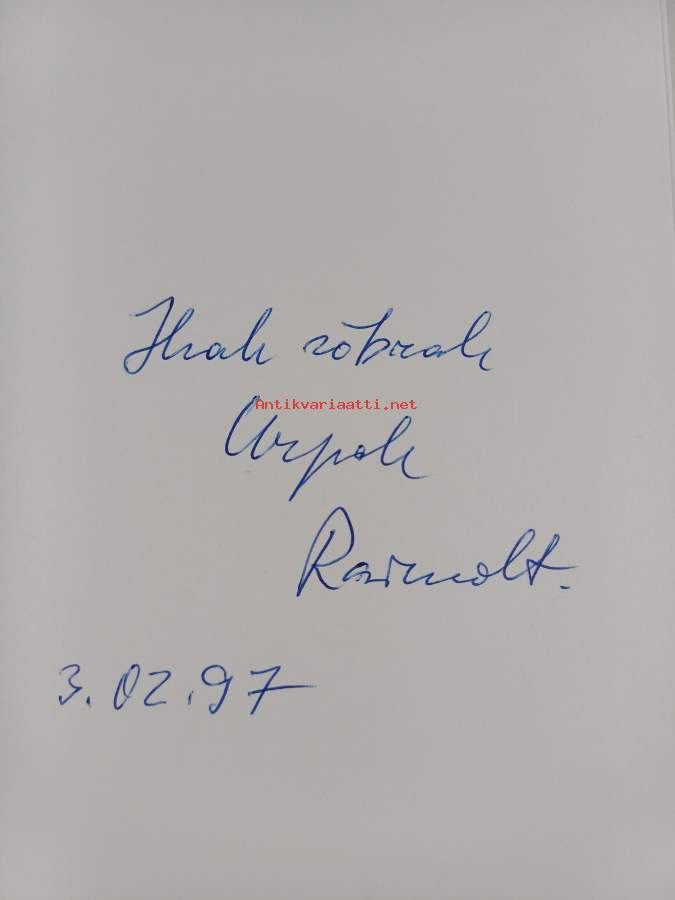 Heale sõbrale
Antikvariaatti.net
Urpole
Raimolt.
3.02.97